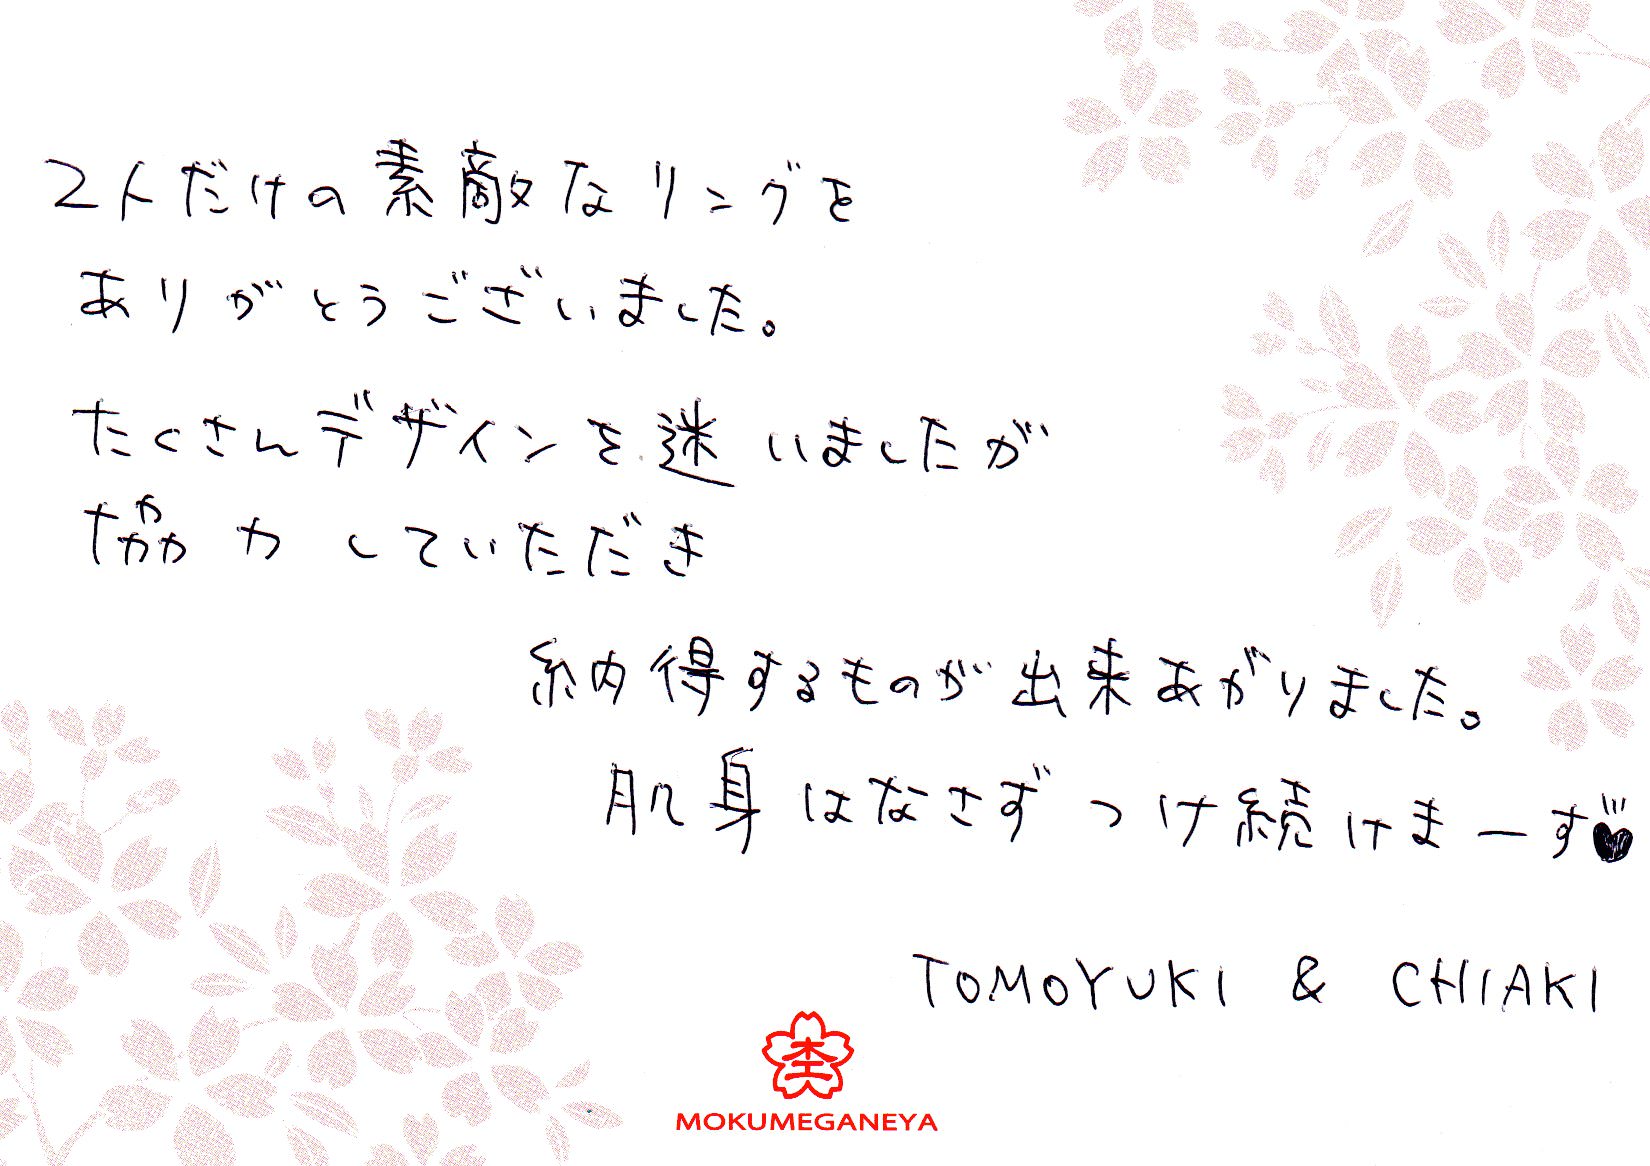 2人だけの素敵なリングを
ありがとうございました。
たくさんデザインを迷いましたが
協力していただき
納得するものが出来あがりました。
肌身はなさずつけ続けまーす♥
TOMOYUKI & CHIAKI
MOKUMEGANEYA